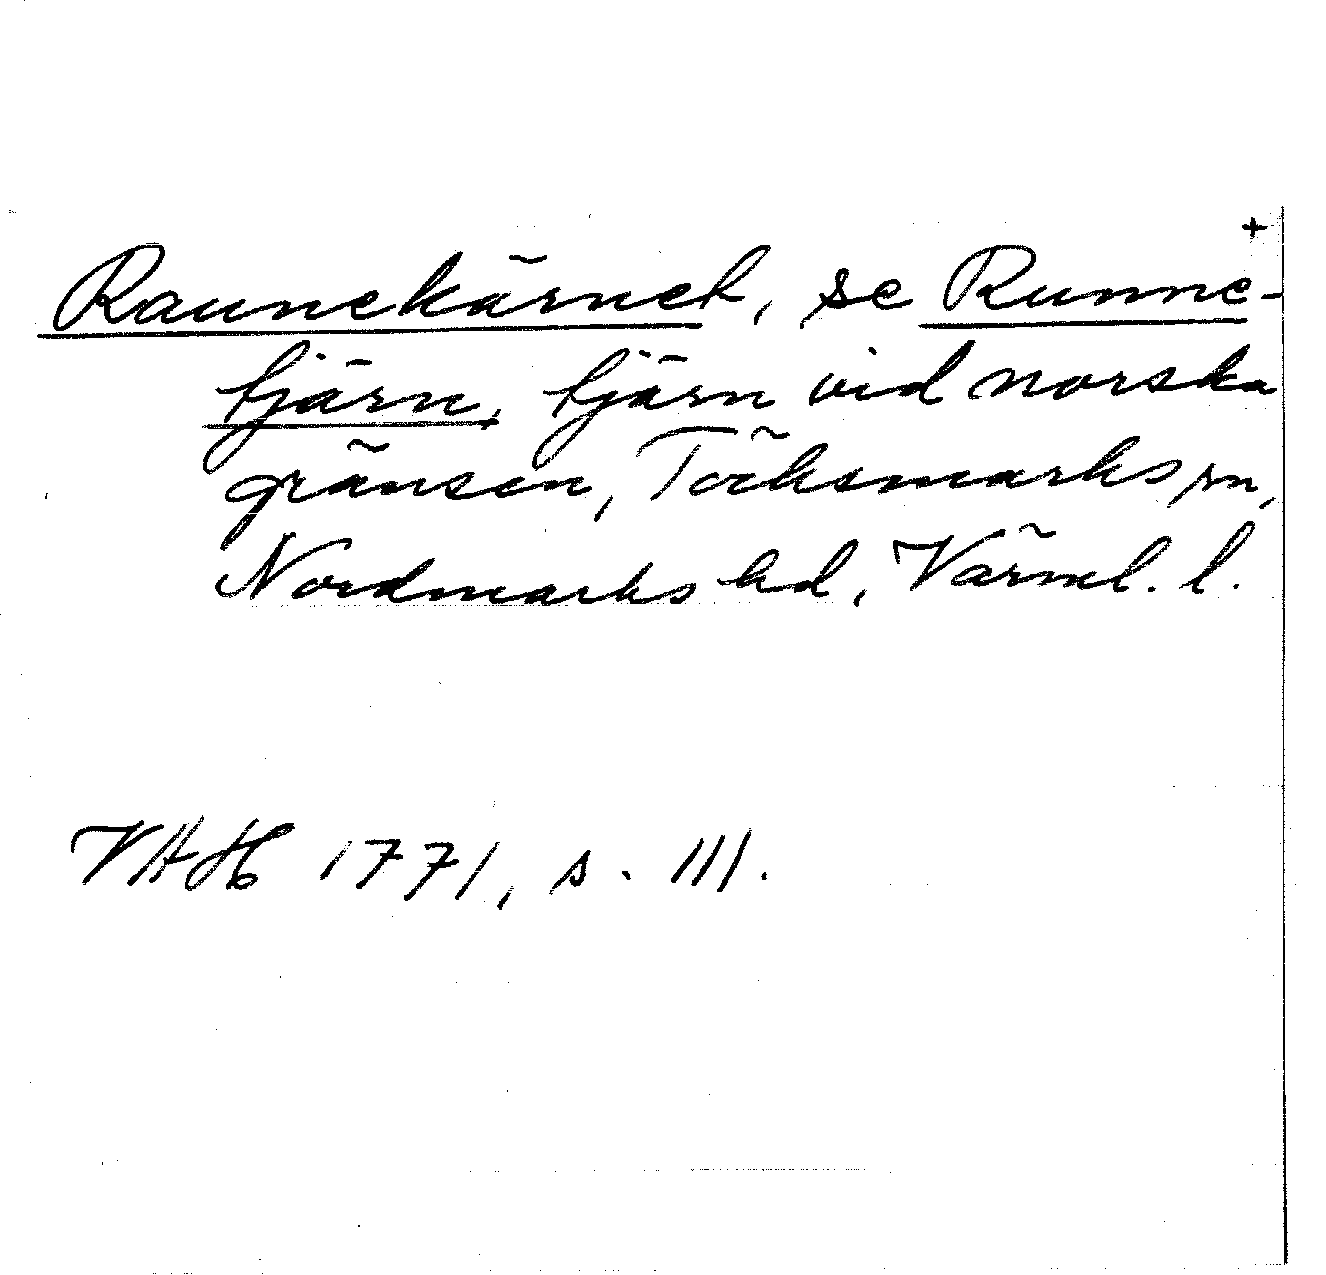 +
Raunekärnet, se Runne-
tjärn, tjärn vid norska
gränsen, Töcksmarks sn,
Nordmarks hd, Värml. l.
VAH 1771, s. 111.